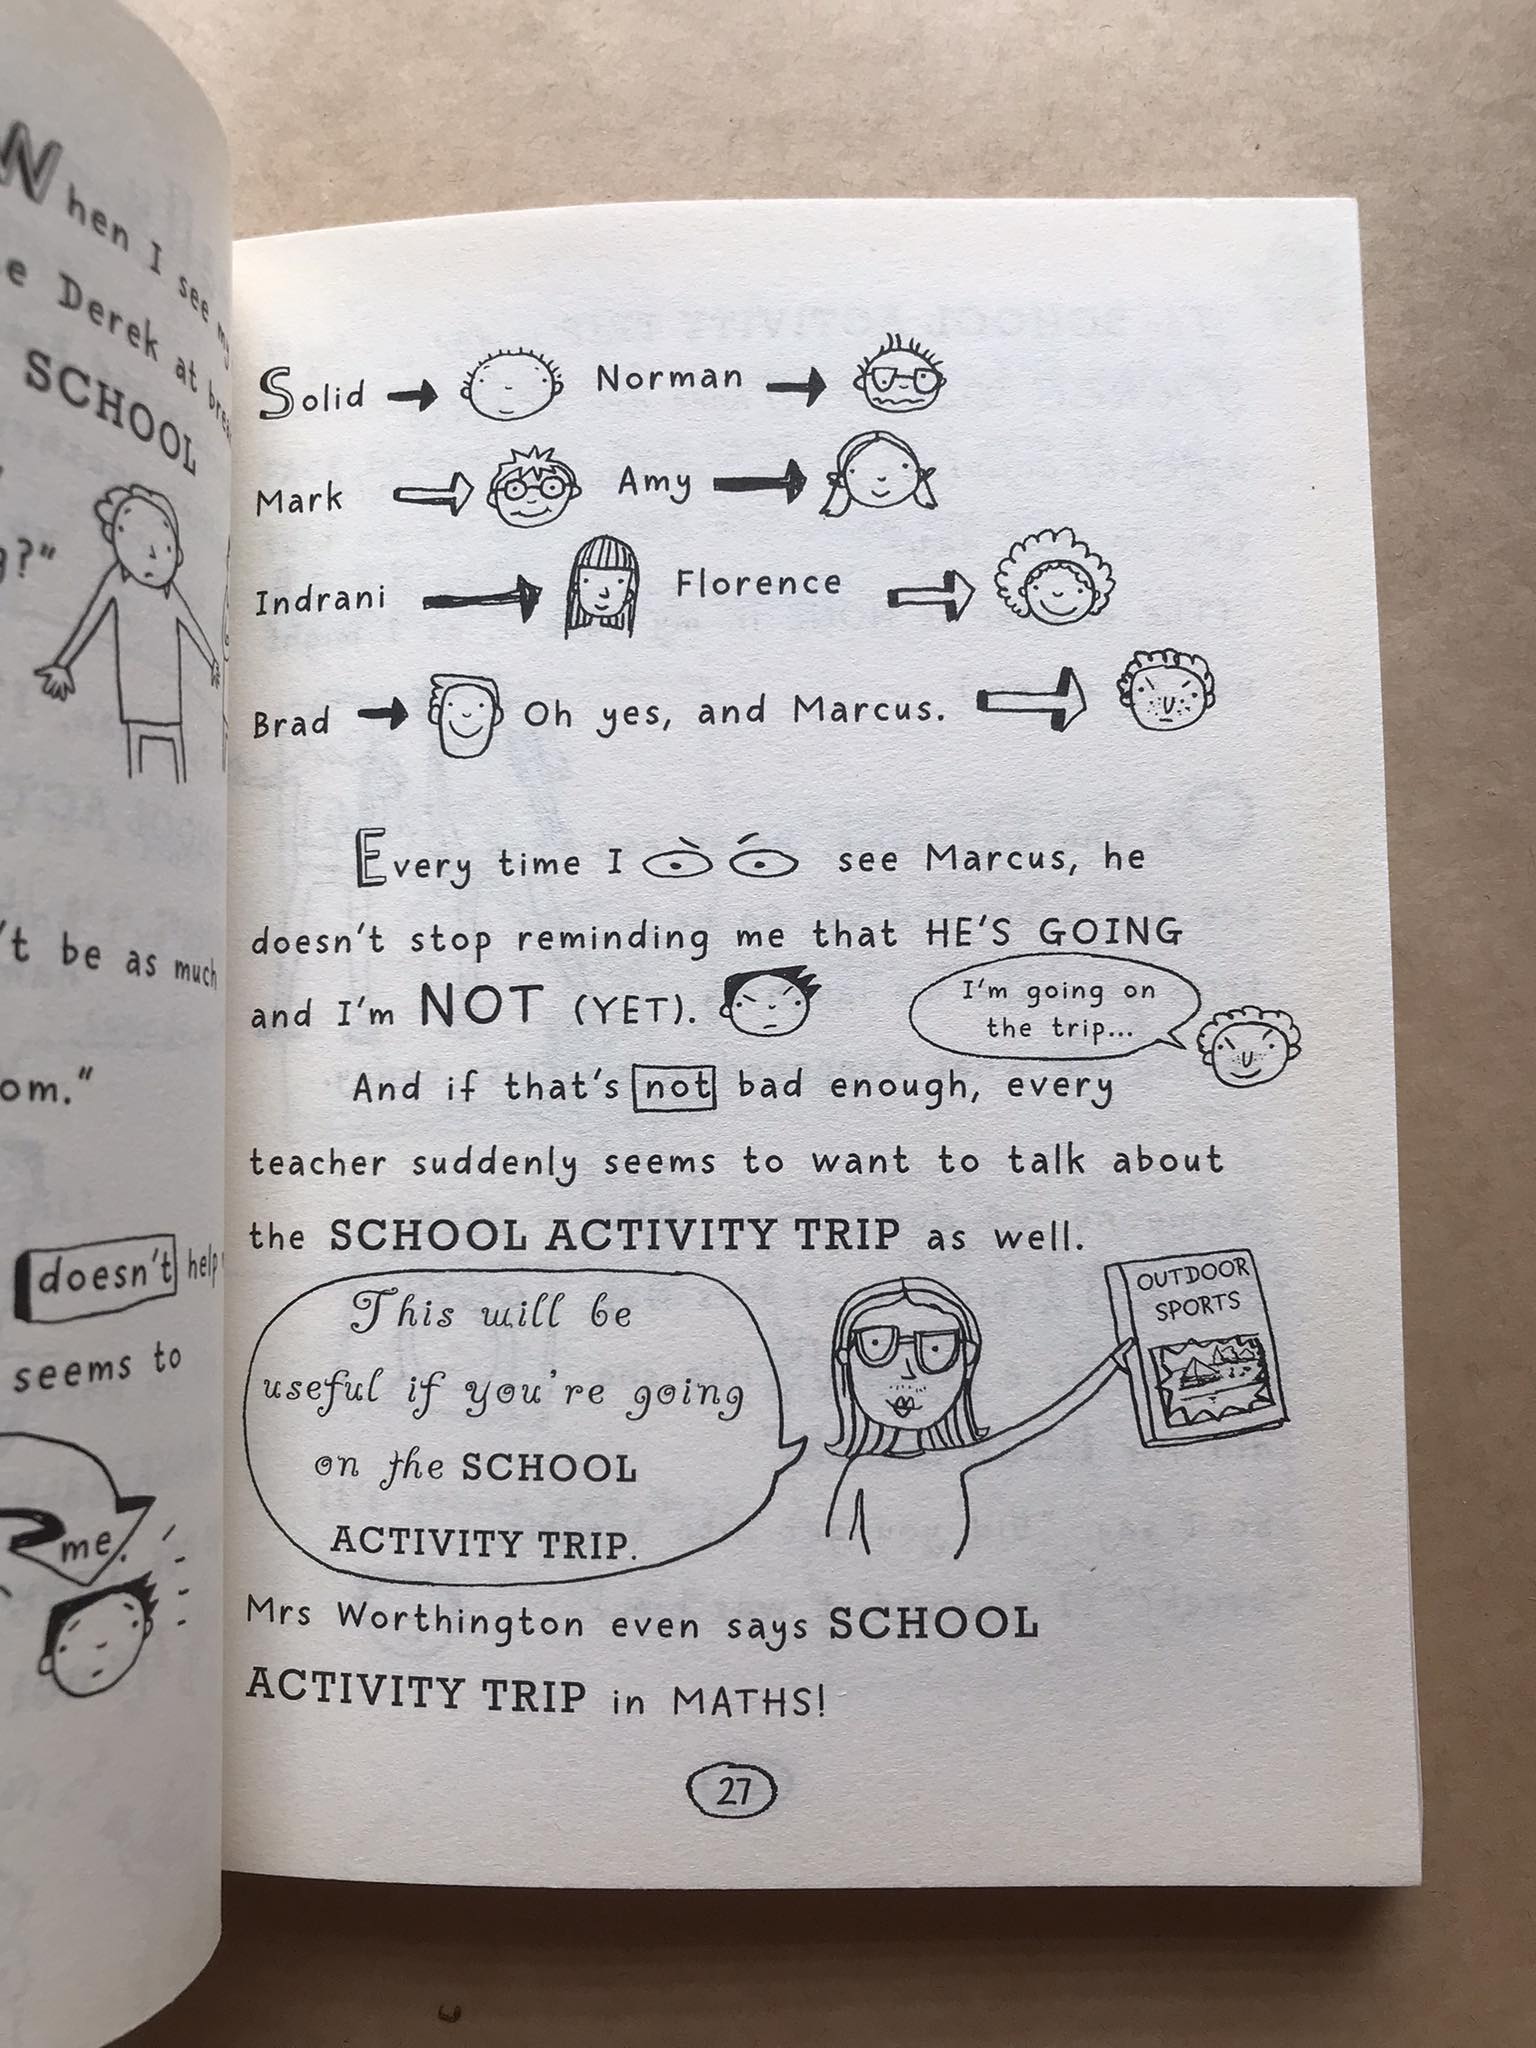 When I see my
e Derek at brea
SCHOOL
g?"
't be as much
om."
doesn't help
seems to
me.
Solid Norman
Mark Amy
Indrani Florence
Brad Oh yes, and Marcus.
Every time I see Marcus, he
doesn't stop reminding me that HE'S GOING
and I'm NOT (YET).
I'm going on
the trip...
And if that's not bad enough, every
teacher suddenly seems to want to talk about
the SCHOOL ACTIVITY TRIP as well.
OUTDOOR
SPORTS
This will be
useful if you're going
on the SCHOOL
ACTIVITY TRIP.
Mrs Worthington even says SCHOOL
ACTIVITY TRIP in MATHS!
27